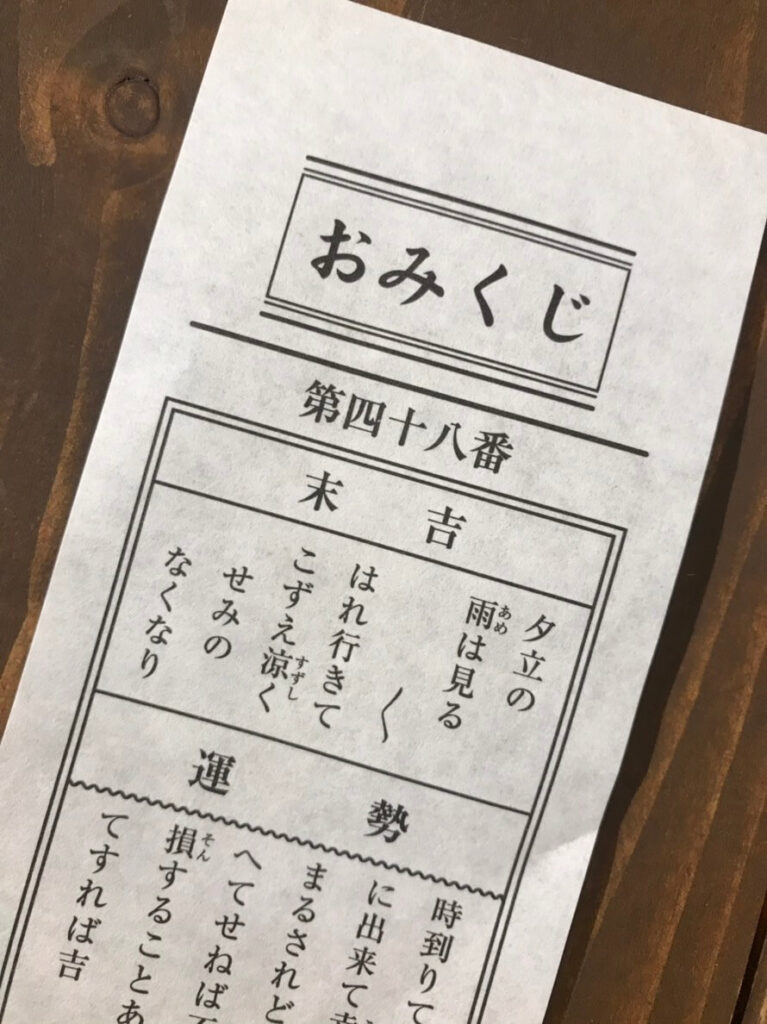 おみくじ
第四十八番
末吉
夕立の
雨は見る
〱
はれ行きて
こずえ涼く
せみの
なくなり
運勢
時到りて
に出来て
まるされど
へてせねば
損することあ
てすれば吉